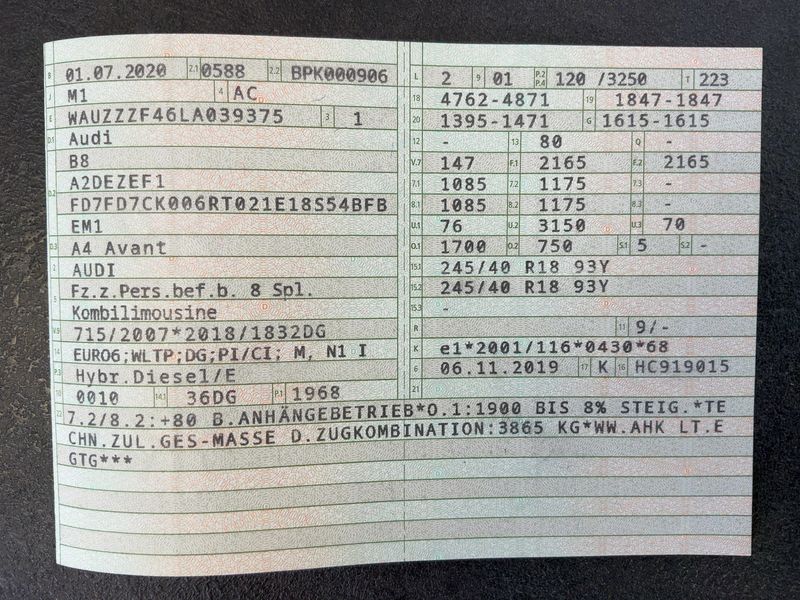 B 01.07.2020 2.1 0588 2.2 BPK000906
J M1 4 AC
E WAUZZZF46LA039375 3 1
D.1 Audi
B8
A2DEZEF1
D.2 FD7FD7CK006RT021E18S54BFB
EM1
D.3 A4 Avant
2 AUDI
5 Fz.z.Pers.bef.b. 8 Spl.
Kombilimousine
V.9 715/2007*2018/1832DG
14 EURO6;WLTP;DG;PI/CI; M, N1 I
P.3 Hybr.Diesel/E
10 0010 14.1 36DG P.1 1968
L 2 9 01 P.2 P.4 120 /3250 T 223
18 4762-4871 19 1847-1847
20 1395-1471 G 1615-1615
12 - 13 80 Q -
V.7 147 F.1 2165 F.2 2165
7.1 1085 7.2 1175 7.3 -
8.1 1085 8.2 1175 8.3 -
U.1 76 U.2 3150 U.3 70
O.1 1700 O.2 750 S.1 5 S.2 -
15.1 245/40 R18 93Y
15.2 245/40 R18 93Y
15.3 -
R 11 9/-
K e1*2001/116*0430*68
6 06.11.2019 17 K 16 HC919015
21
22 7.2/8.2:+80 B.ANHÄNGEBETRIEB*O.1:1900 BIS 8% STEIG.*TE
CHN.ZUL.GES-MASSE D.ZUGKOMBINATION:3865 KG*WW.AHK LT.E
GTG***